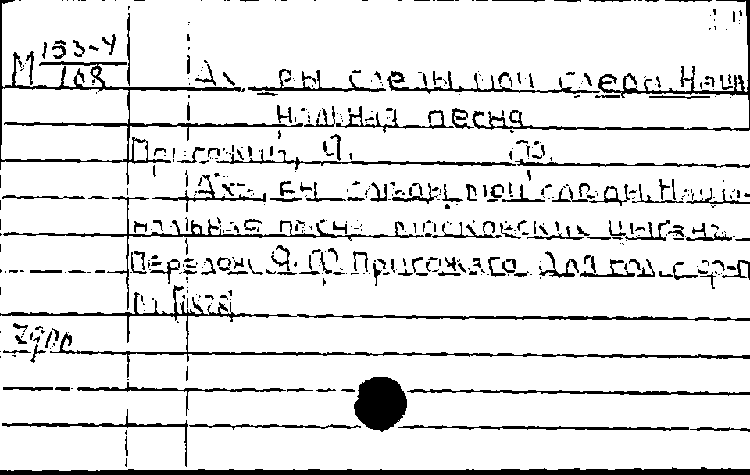 М 153-4/108
Ах вы следы мои следы. Нацио-
нальная песня
Пригожий, Я. Ф.
Ахъ, вы следы мои следы. Націо-
нальная песня московских цыганъ
Перелож. Я. Ф. Пригожаго. Для гол. с ф-п
М. [1878]